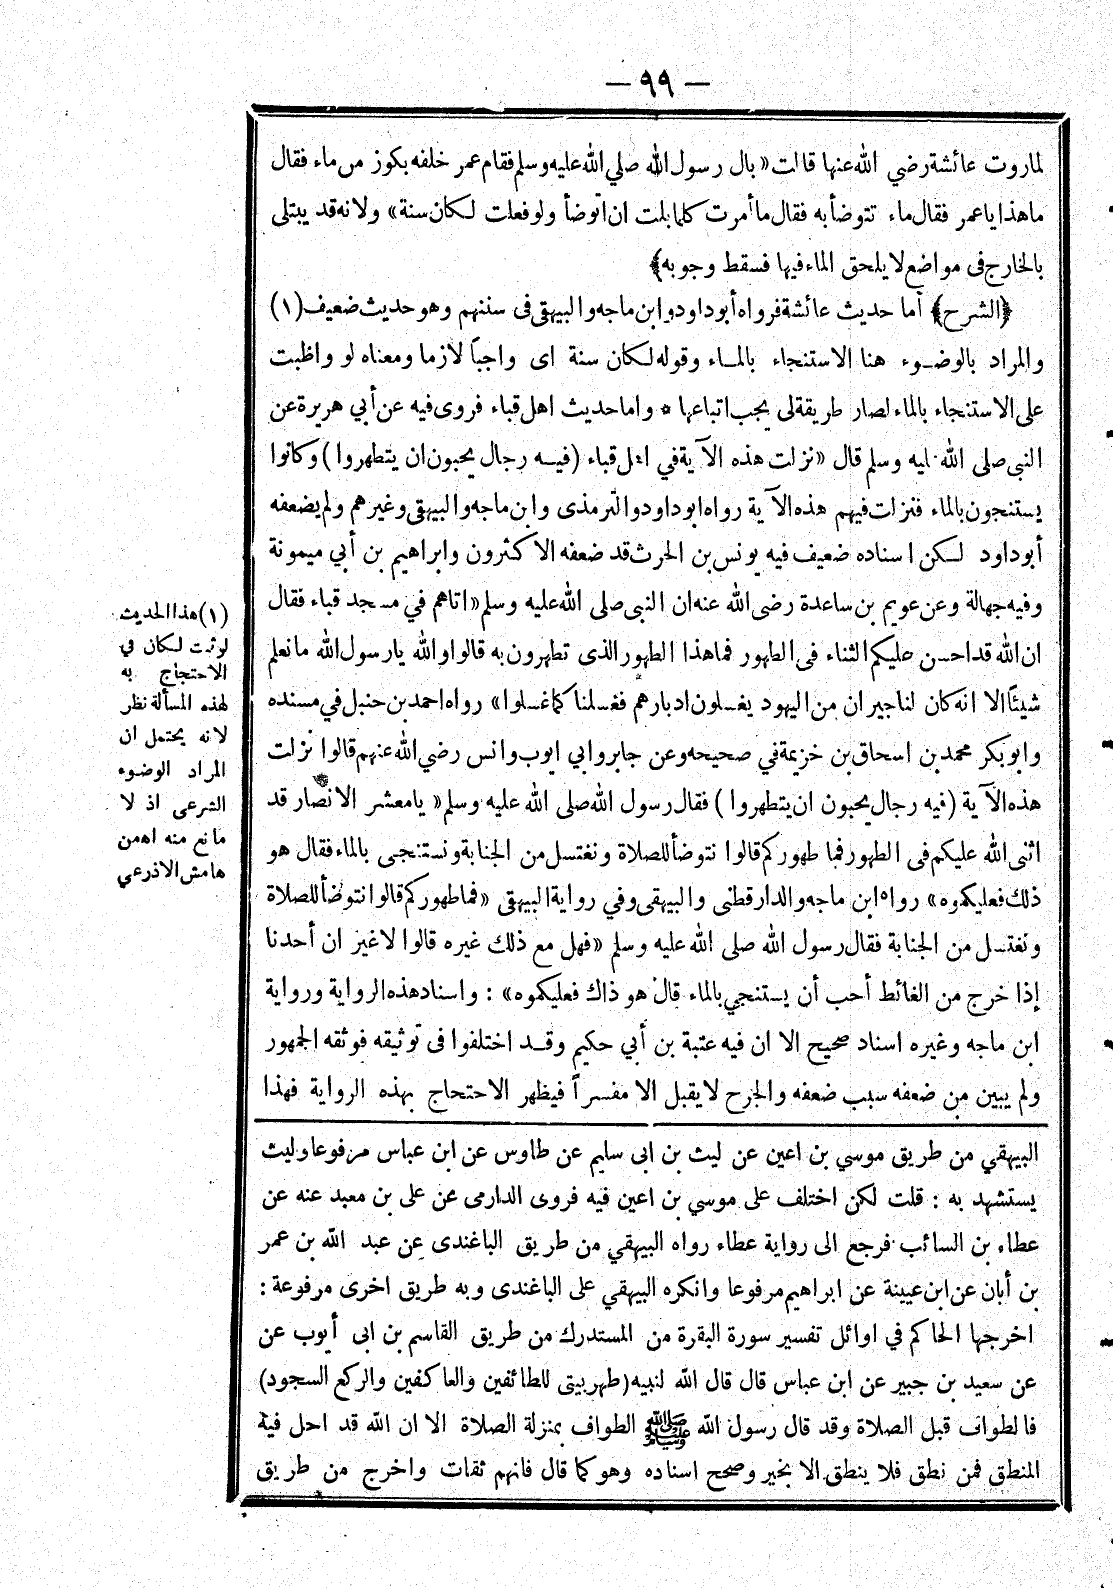 — ٩٩ —
لماروت عائشة رضي الله عنها قالت « بال رسول الله صلي الله عليه وسلم فقام عمر خلفه بكوز من ماء فقال
ما هذا يا عمر فقال ماء تتوضأ به فقال ما أمرت كلما بلت ان اتوضأ ولو فعلت لكان سنة » ولانه قد يبتلى
بالخارج فى مواضع لا يلحق الماء فيها فسقط وجوبه ﴾
﴿ الشرح ﴾ أما حديث عائشة فرواه أبو داود وابن ماجه والبيهقى فى سننهم وهو حديث ضعيف (١)
والمراد بالوضوء هنا الاستنجاء بالماء وقوله لكان سنة اى واجباً لازما ومعناه لو واظبت
على الاستنجاء بالماء لصار طريقة لى يجب اتباعها * واما حديث اهل قباء فروى فيه عن أبي هريرة عن
النبى صلى الله ليه وسلم قال « نزلت هذه الآية في اهل قباء ( فيه رجال يحبون ان يتطهروا ) وكانوا
يستنجون بالماء فنزلت فيهم هذه الآية رواه ابو داود والترمذى وابن ماجه والبيهقى وغيرهم ولم يضعفه
أبو داود لكن اسناده ضعيف فيه يونس بن الحرث قد ضعفه الاكثرون وابراهيم بن أبي ميمونة
وفيه جهالة وعن عويم بن ساعدة رضى الله عنه ان النبى صلى الله عليه وسلم « اتاهم في مسجد قباء فقال
ان الله قد احسن عليكم الثناء فى الطهور فما هذا الطهور الذى تطهرون به قالوا والله يا رسول الله ما نعلم
شيئاً الا انه كان لنا جيران من اليهود يغسلون ادبارهم فغسلنا كما غسلوا » رواه احمد بن حنبل في مسنده
وابو بكر محمد بن اسحاق بن خزيمة في صحيحه وعن جابر وابي ايوب وانس رضي الله عنهم قالوا نزلت
هذه الآية ( فيه رجال يحبون ان يتطهروا ) فقال رسول الله صلى الله عليه وسلم « يا معشر الانصار قد
اثنى الله عليكم فى الطهور فما طهوركم قالوا نتوضأ للصلاة ونغتسل من الجنابة ونستنجى بالماء فقال هو
ذلك فعليكموه » رواه ابن ماجه والدار قطنى والبيهقى وفي رواية البيهقى « فما طهوركم قالوا نتوضأ للصلاة
ونغتسل من الجنابة فقال رسول الله صلى الله عليه وسلم « فهل مع ذلك غيره قالوا لا غير ان أحدنا
إذا خرج من الغائط أحب أن يستنجي بالماء قال هو ذاك فعليكموه » : واسناد هذه الرواية ورواية
ابن ماجه وغيره اسناد صحيح الا ان فيه عتبة بن أبي حكيم وقد اختلفوا فى توثيقه فوثقه الجمهور
ولم يبين من ضعفه سبب ضعفه والجرح لا يقبل الا مفسراً فيظهر الاحتجاج بهذه الرواية فهذا
(١) هذا الحديث
لو ثبت لكان في
الاحتجاج به
لهذه المسألة نظر
لانه يحتمل ان
المراد الوضوء
الشرعى اذ لا
مانع منه اه من
هامش الاذرعي
البيهقي من طريق موسي بن اعين عن ليث بن ابى سليم عن طاوس عن ابن عباس مرفوعا وليث
يستشهد به : قلت لكن اختلف على موسي بن اعين فيه فروى الدارمى عن على بن معبد عنه عن
عطاء بن السائب فرجع الى رواية عطاء رواه البيهقي من طريق الباغندى عن عبد الله بن عمر
بن أبان عن ابن عيينة عن ابراهيم مرفوعا وانكره البيهقي على الباغندى وبه طريق اخرى مرفوعة :
اخرجها الحاكم في اوائل تفسير سورة البقرة من المستدرك من طريق القاسم بن ابى أيوب عن
عن سعيد بن جبير عن ابن عباس قال قال الله لنبيه ( طهر بيتى للطائفين والعاكفين والركع السجود )
فالطواف قبل الصلاة وقد قال رسول الله ﷺ الطواف بمنزلة الصلاة الا ان الله قد احل فيه
المنطق فمن نطق فلا ينطق الا بخير وصحح اسناده وهو كما قال فانهم ثقات واخرج من طريق